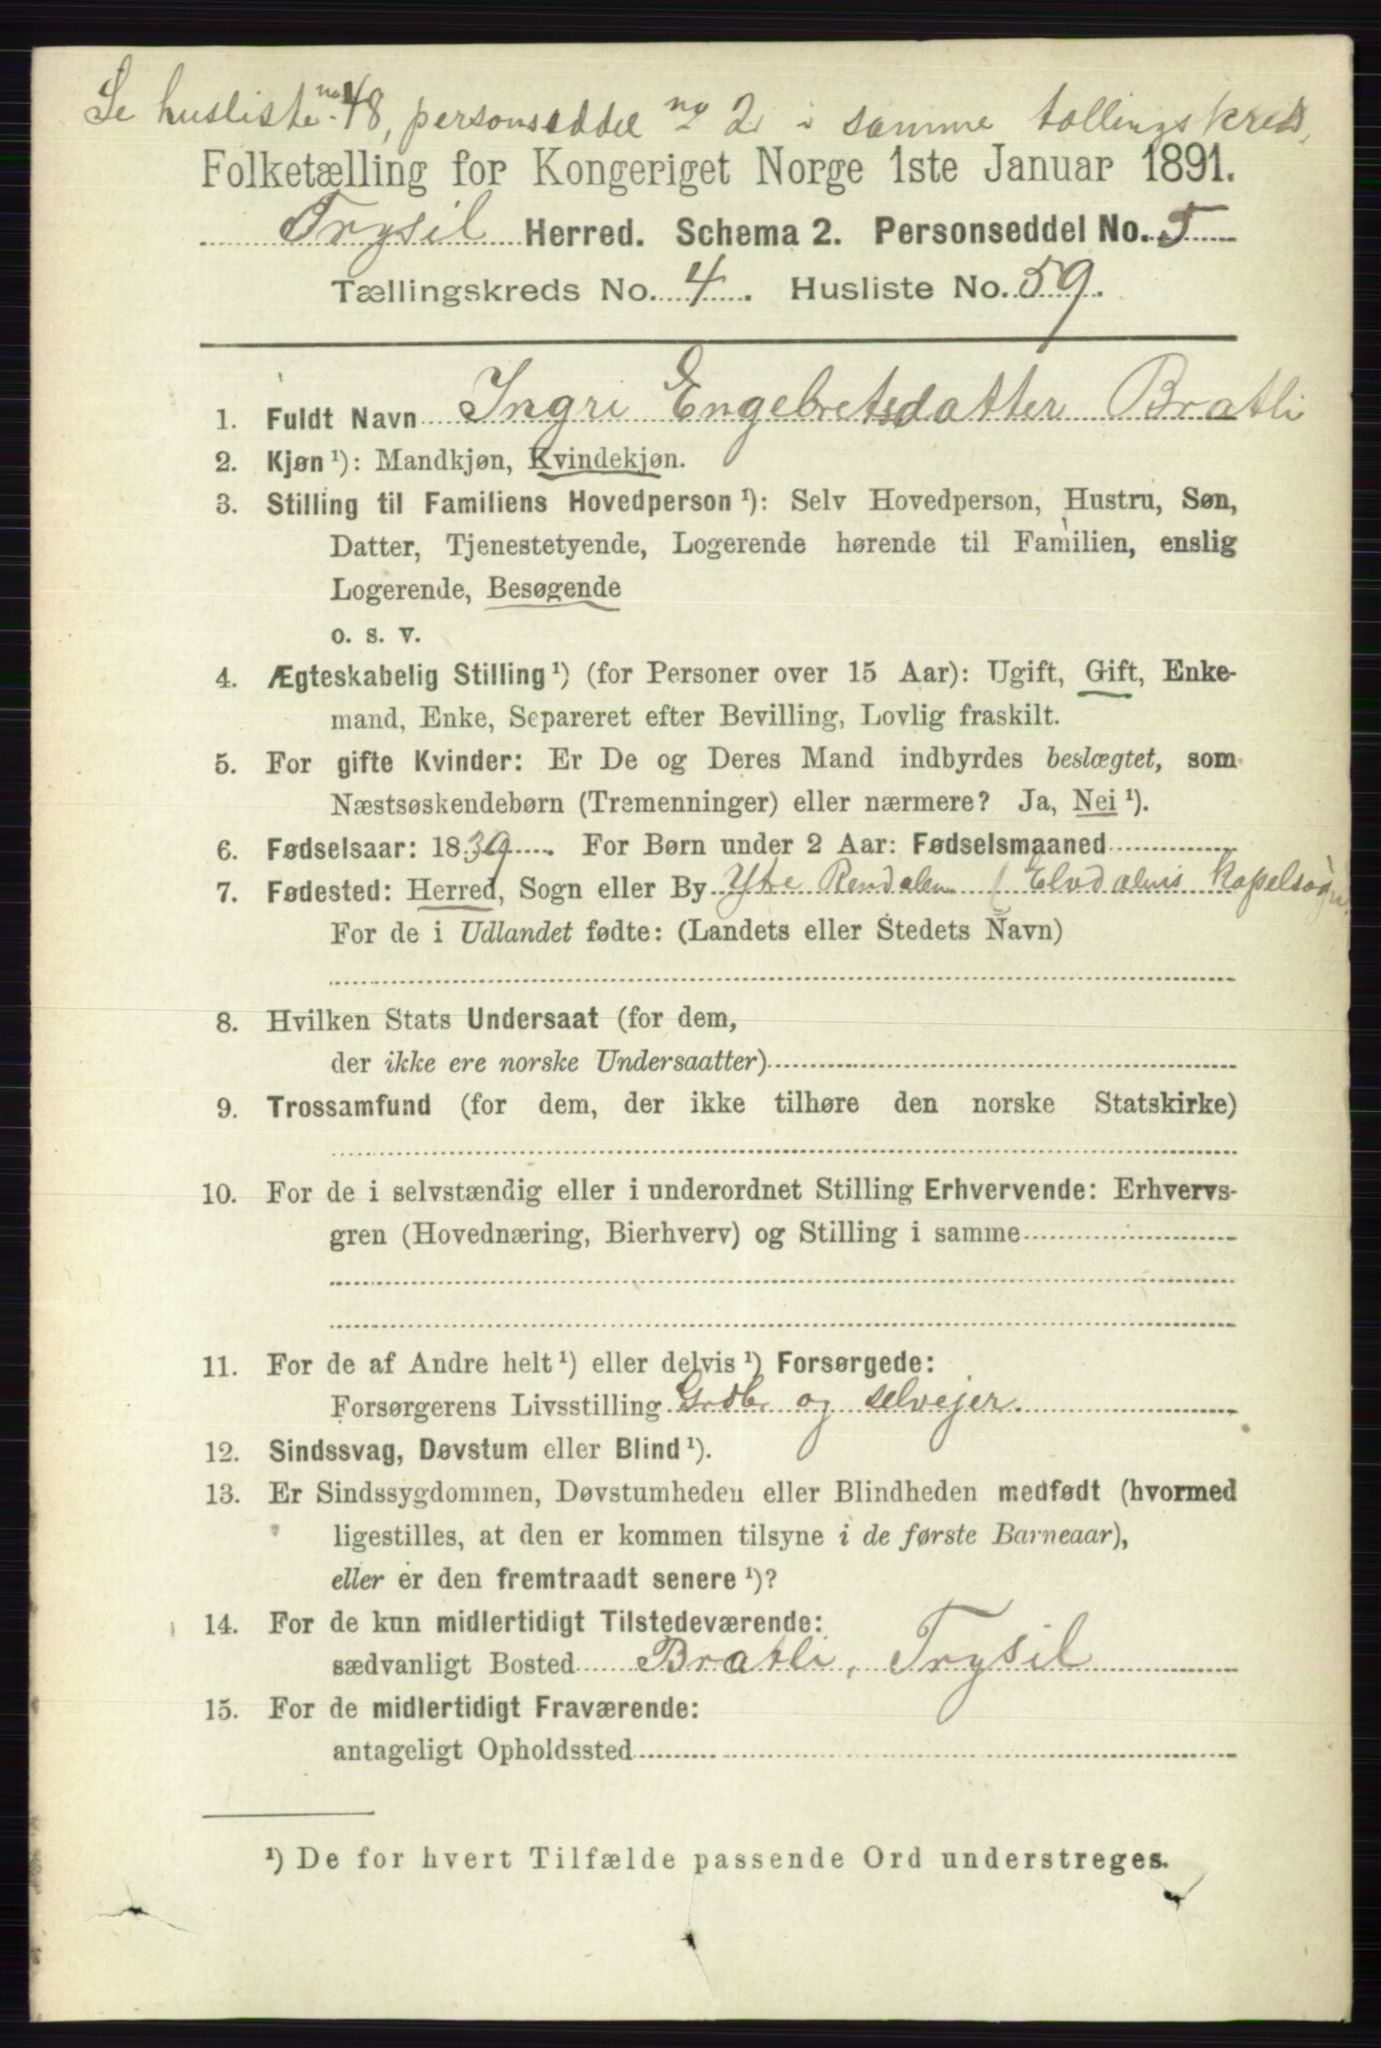 Se husliste no 48, personseddel no 2 i samme tællingskreds.
Folketælling for Kongeriget Norge 1ste Januar 1891.
Trysil Herred. Schema 2. Personseddel No. 5
Tællingskreds No. 4. Husliste No. 59.
1. Fuldt Navn Ingri Engebretsdatter Bratli
2. Kjøn ¹): Mandkjøn, Kvindekjøn.
3. Stilling til Familiens Hovedperson ¹): Selv Hovedperson, Hustru, Søn,
Datter, Tjenestetyende, Logerende hørende til Familien, enslig
Logerende, Besøgende
o. s. v.
4. Ægteskabelig Stilling ¹) (for Personer over 15 Aar): Ugift, Gift, Enke-
mand, Enke, Separeret efter Bevilling, Lovlig fraskilt.
5. For gifte Kvinder: Er De og Deres Mand indbyrdes beslægtet, som
Næstsøskendebørn (Tremenninger) eller nærmere? Ja, Nei ¹).
6. Fødselsaar: 1839. For Børn under 2 Aar: Fødselsmaaned
7. Fødested: Herred, Sogn eller By Ytre Rendalen ( Elvdalens Kapelsogn
For de i Udlandet fødte: (Landets eller Stedets Navn)
8. Hvilken Stats Undersaat (for dem,
der ikke ere norske Undersaatter)
9. Trossamfund (for dem, der ikke tilhøre den norske Statskirke)
10. For de i selvstændig eller i underordnet Stilling Erhvervende: Erhvervs-
gren (Hovednæring, Bierhverv) og Stilling i samme
11. For de af Andre helt ¹) eller delvis ¹) Forsørgede:
Forsørgerens Livsstilling Grdb. og selvejer.
12. Sindssvag, Døvstum eller Blind ¹).
13. Er Sindssygdommen, Døvstumheden eller Blindheden medfødt (hvormed
ligestilles, at den er kommen tilsyne i de første Barneaar),
eller er den fremtraadt senere ¹)?
14. For de kun midlertidigt Tilstedeværende:
sædvanligt Bosted Bratli, Trysil
15. For de midlertidigt Fraværende:
antageligt Opholdssted
¹) De for hvert Tilfælde passende Ord understreges.